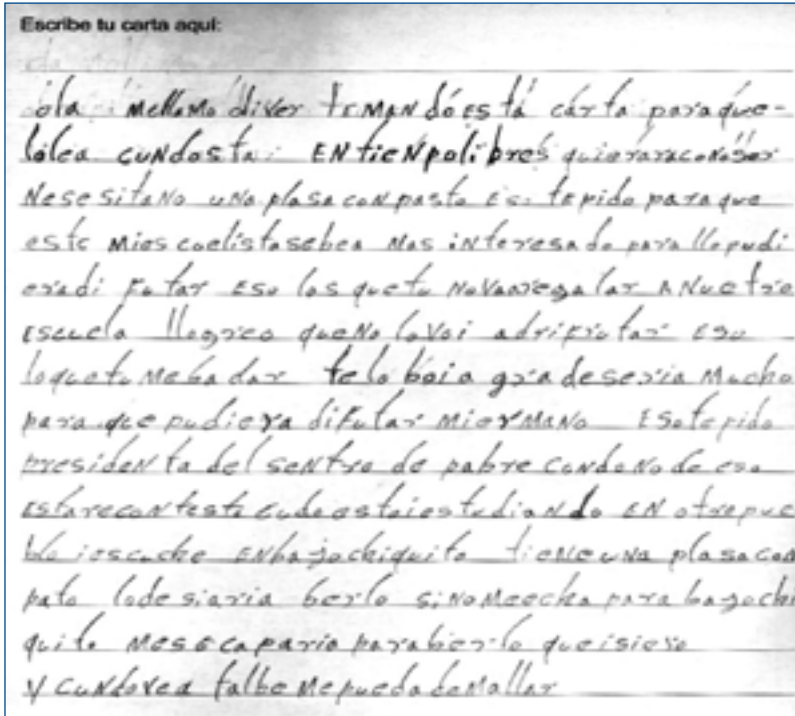 Escribe tu carta aquí:
óla mellamo diver temandó está cárta paraque-
lólea cundosta: EN tieNpoli bres quieraraconoser
Nesesitano una plasa con pasto Eso tepido para que
este mies coelistasebea mas interesado para llopudi
eradi futar Eso los quetu Novaaregalar A Nuetra
Escuela llogreo queno lovoi adrifrutar Eso
loquetu meba dar telo boia gradeseria mucho
para que pudiera difutar miermano Esotepido
presidenta del sentro de pabre condono de eso
Estarecontesta cudoestoiestudiando en otropue
blo iescuche enbajochiquito tieneuna plasa con
pato lodesiaria berlo sinomeecha para bagochi
quito mesecaparia parabierlo queisiero
y cundovea talbe mepueda demallar